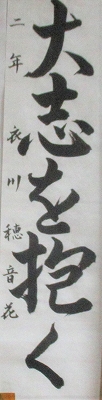 大志を抱く
二年 衣川穂音花